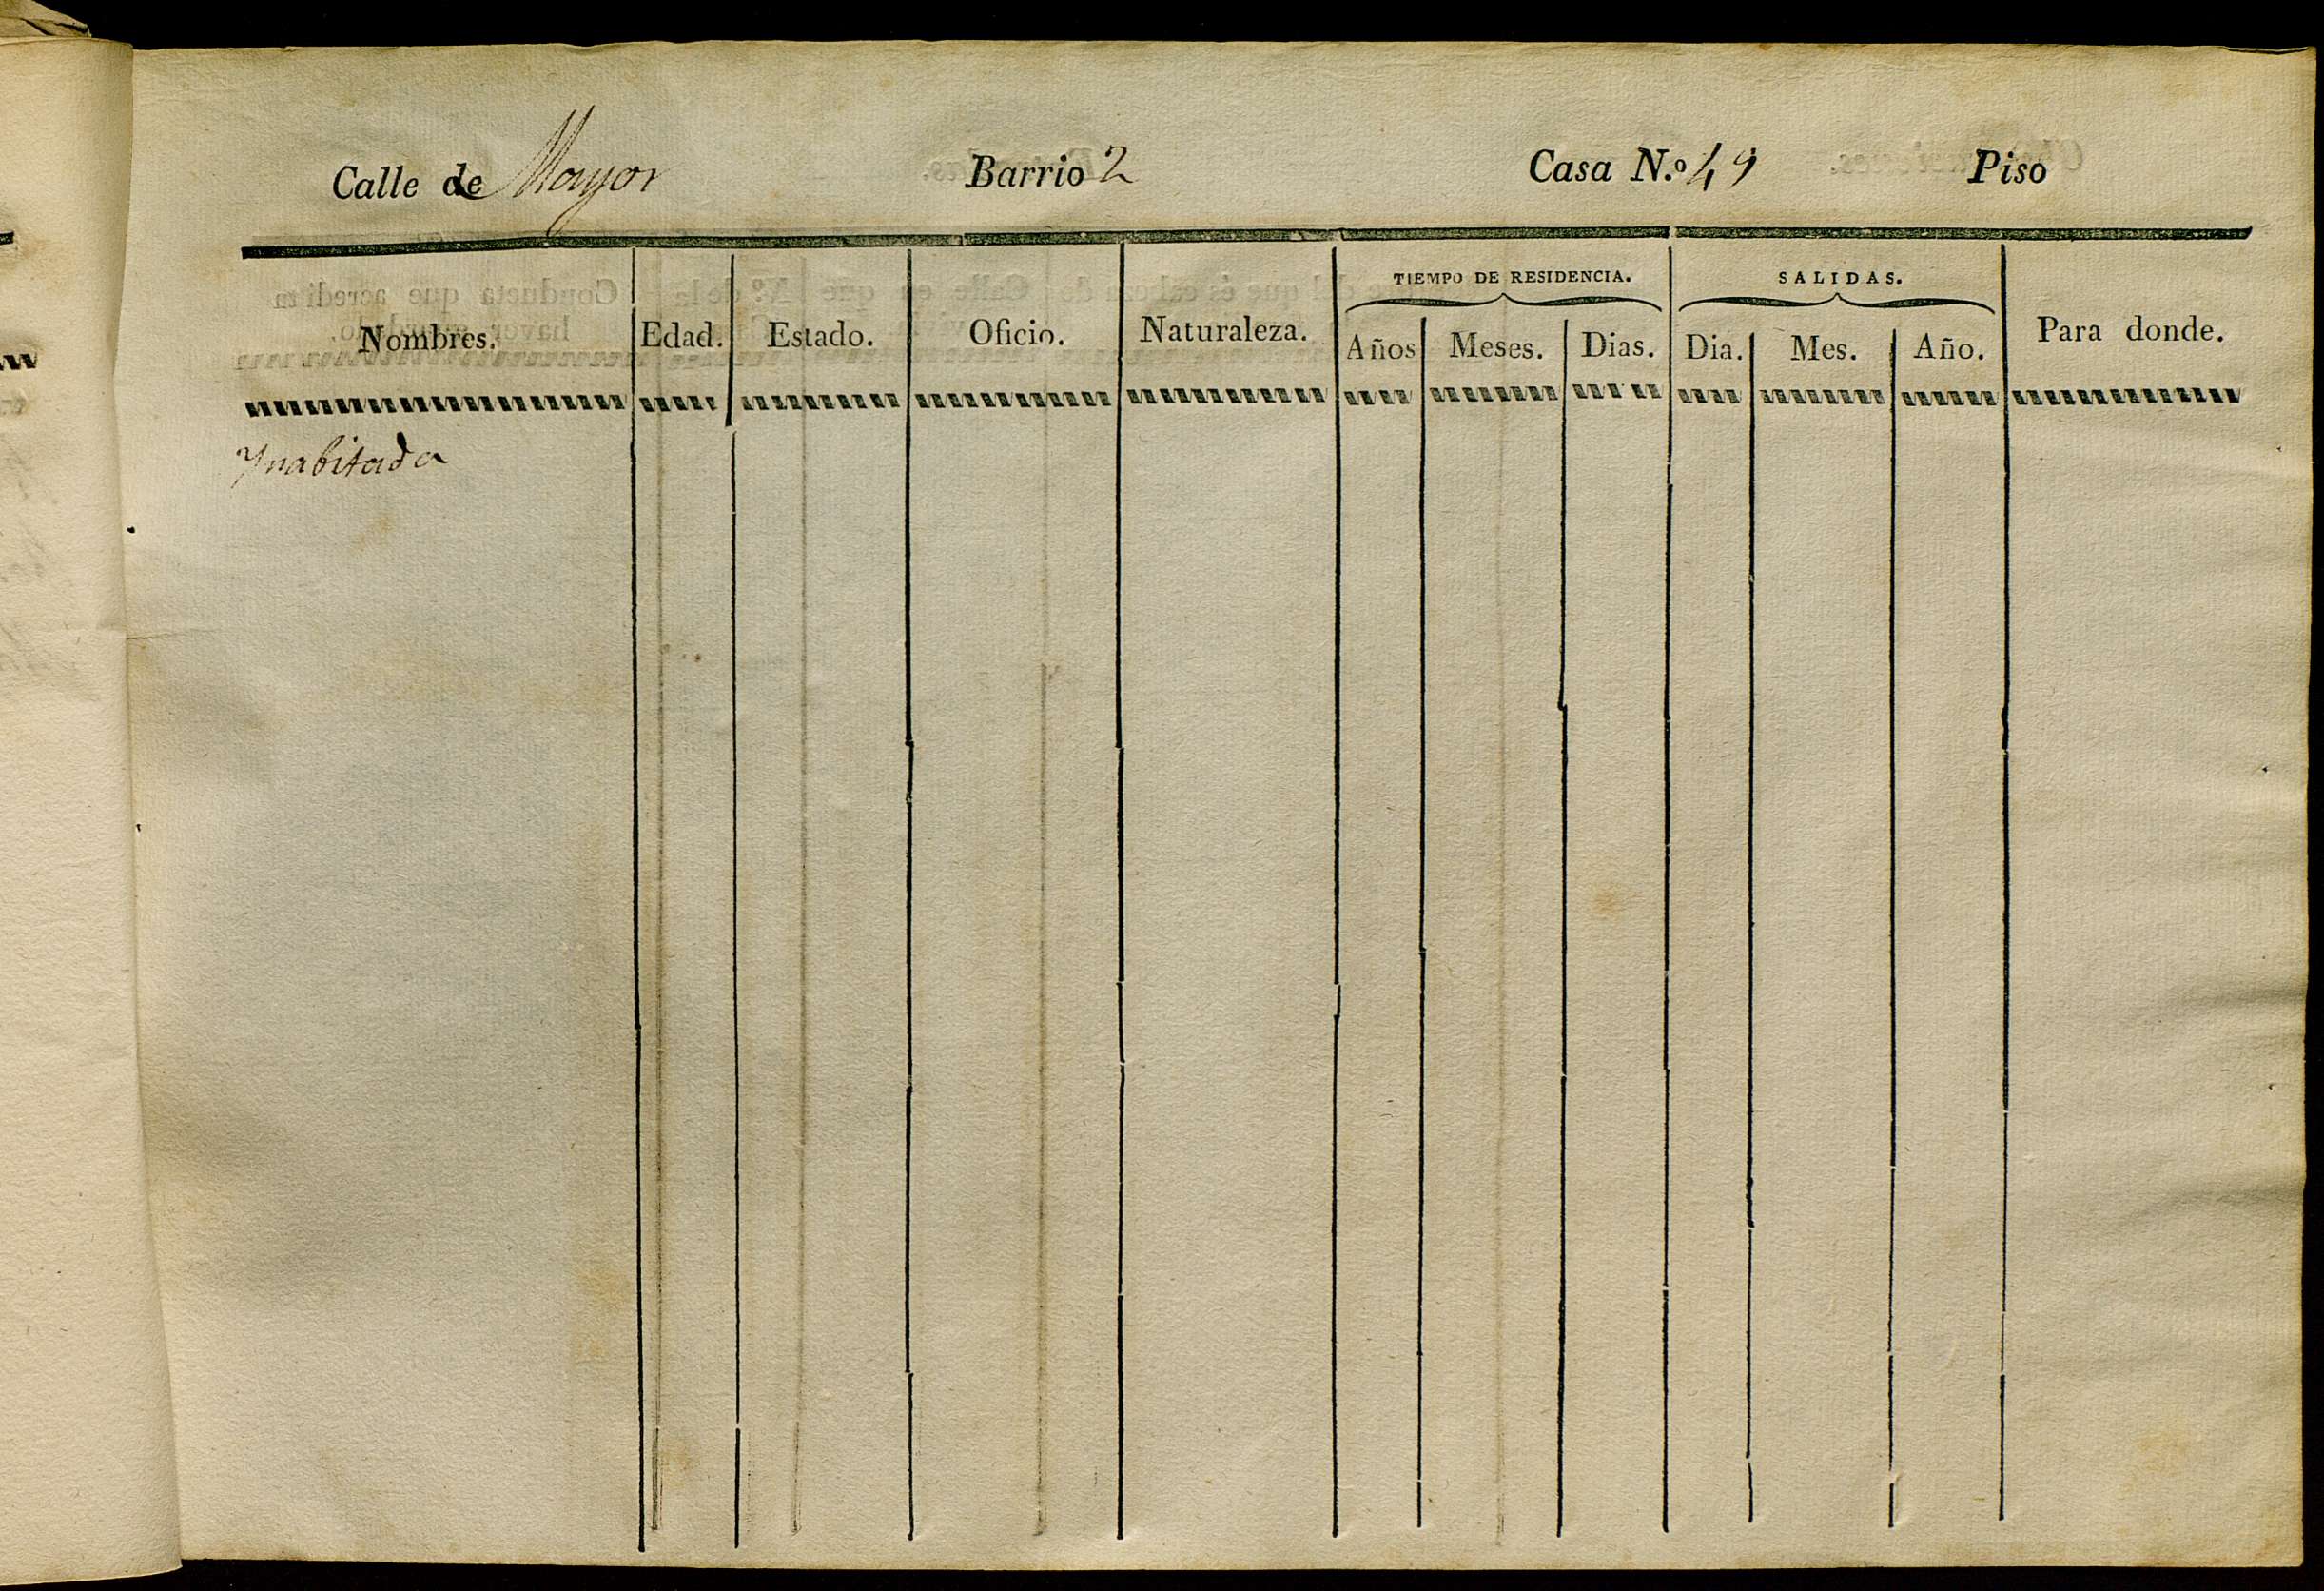 Calle de Mayor Barrio 2 Casa N.º 49 Piso
TIEMPO DE RESIDENCIA. SALIDAS.
Nombres. Edad. Estado. Oficio. Naturaleza. Años Meses. Dias. Dia. Mes. Año. Para donde.
Ynabitada